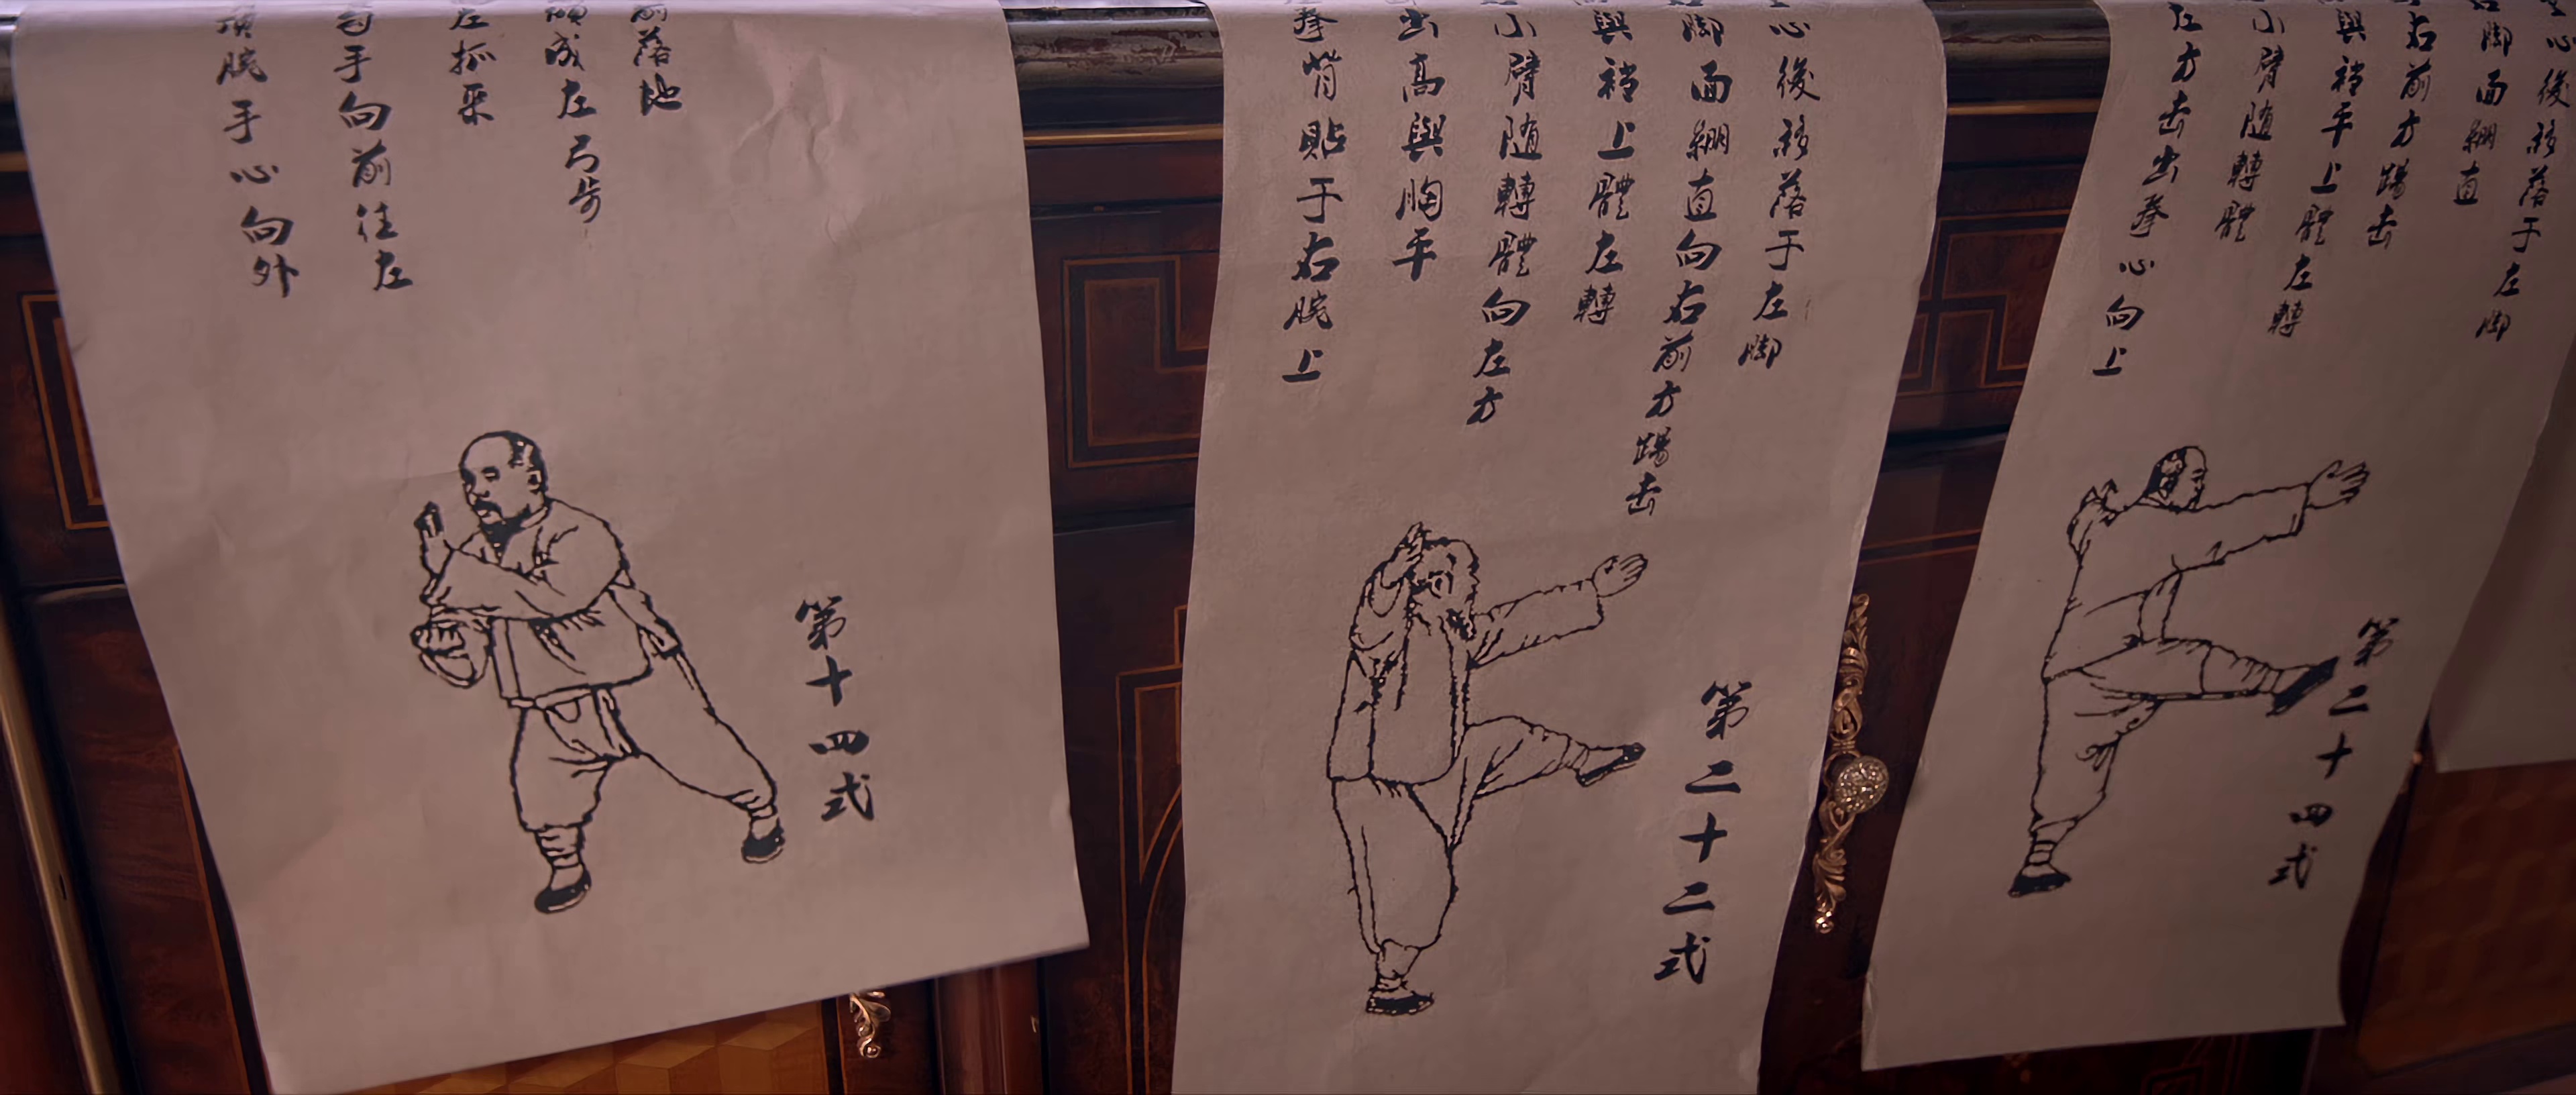 落地
成左弓步
左抓采
手向前往左
腕手心向外
第十四式
心後移落于左脚
脚面繃直向右前方踢击
與裆上體左轉
小臂随轉體向左方
出高與胸平
拳背貼于右腕上
第二十二式
心後移落于左脚
脚面繃直
右前方踢击
與裆平上體左轉
小臂随轉體
左方击出拳心向上
第二十四式